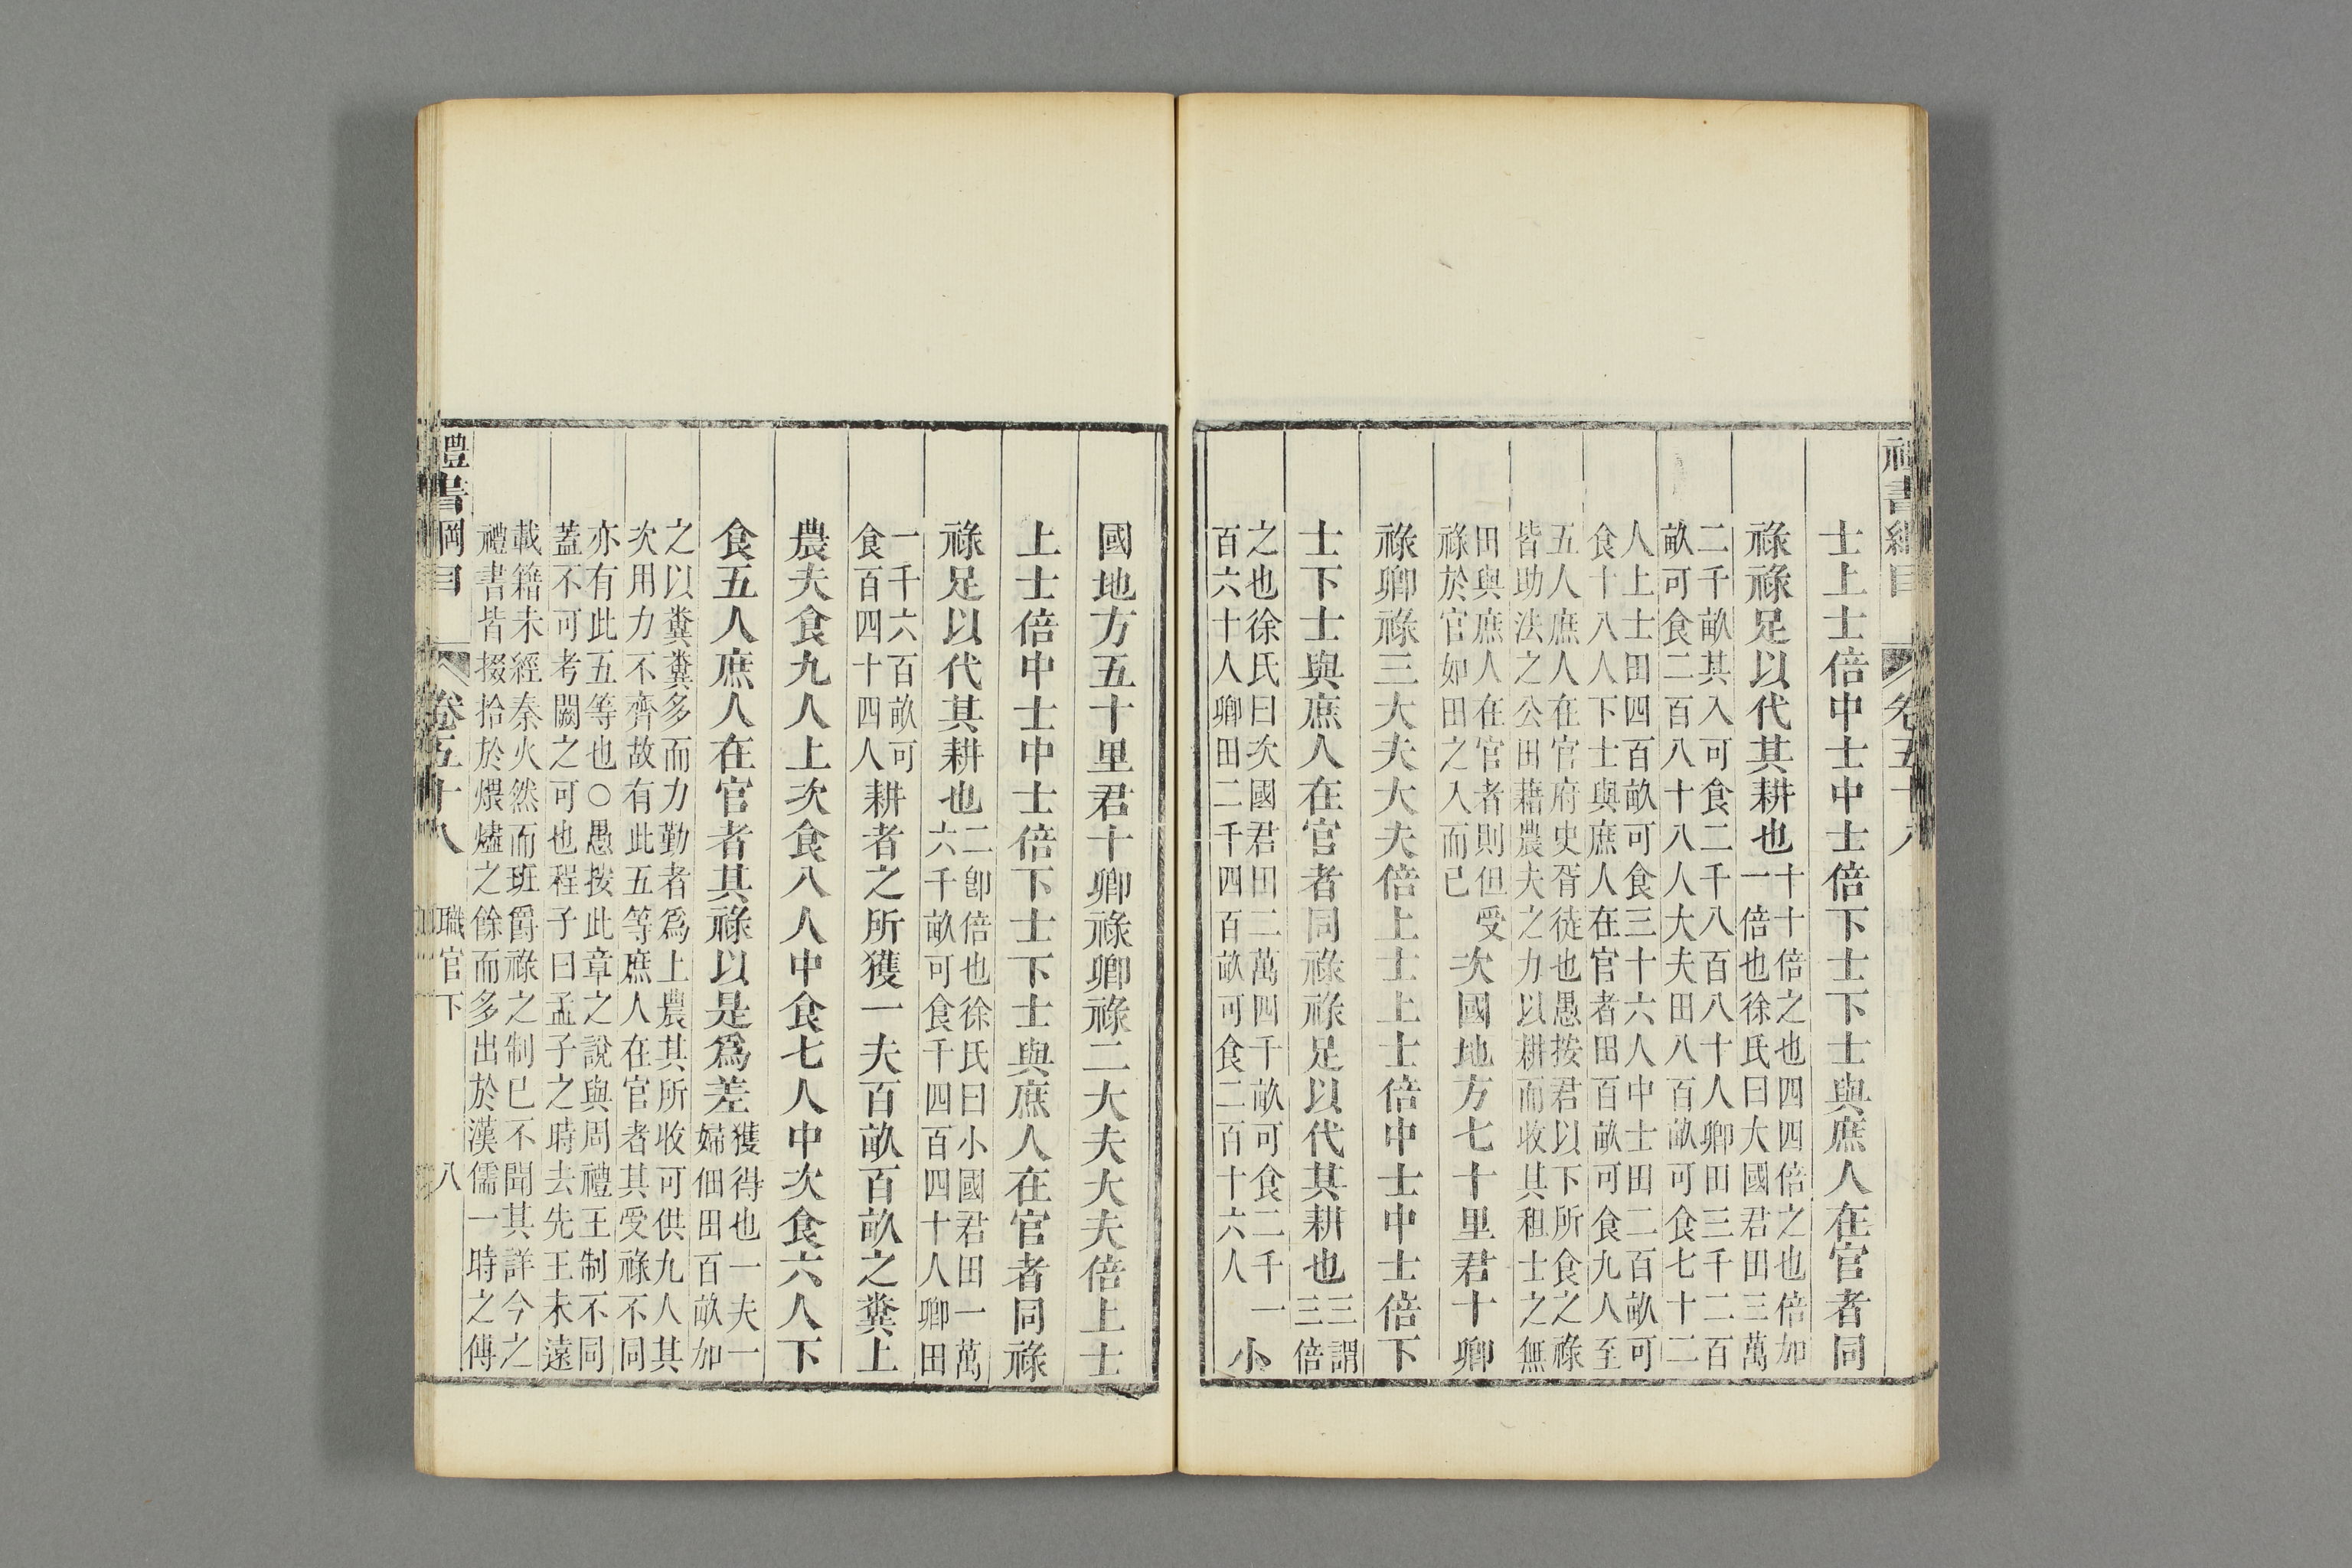 禮書綱目 卷五十八
士上士倍中士中士倍下士下士與庶人在官者同
祿祿足以代其耕也十十倍之也四四倍之也倍加
一倍也徐氏曰大國君田三萬
二千畝其入可食二千八百八十人卿田三千二百
畝可食二百八十八人大夫田八百畝可食七十二
人上士田四百畝可食三十六人中士田二百畝可
食十八人下士與庶人在官者田百畝可食九人至
五人庶人在官府史胥徒也愚按君以下所食之祿
皆助法之公田藉農夫之力以耕而收其租士之無
田與庶人在官者則但受
祿於官如田之入而已次國地方七十里君十卿
祿卿祿三大夫大夫倍上士上士倍中士中士倍下
士下士與庶人在官者同祿祿足以代其耕也三謂
三倍
之也徐氏曰次國君田二萬四千畝可食二千一
百六十人卿田二千四百畝可食二百十六人小
國地方五十里君十卿祿卿祿二大夫大夫倍上士
上士倍中士中士倍下士下士與庶人在官者同祿
祿足以代其耕也二卽倍也徐氏曰小國君田一萬
六千畝可食千四百四十人卿田
一千六百畝可
食百四十四人耕者之所獲一夫百畝百畝之糞上
農夫食九人上次食八人中食七人中次食六人下
食五人庶人在官者其祿以是爲差獲得也一夫一
婦佃田百畝加
之以糞糞多而力勤者爲上農其所收可供九人其
次用力不齊故有此五等庶人在官者其受祿不同
亦有此五等也○愚按此章之說與周禮王制不同
蓋不可考闕之可也程子曰孟子之時去先王未遠
載籍未經秦火然而班爵祿之制已不聞其詳今之
禮書皆掇拾於煨燼之餘而多出於漢儒一時之傅
禮書綱目 卷五十八 職官下 八